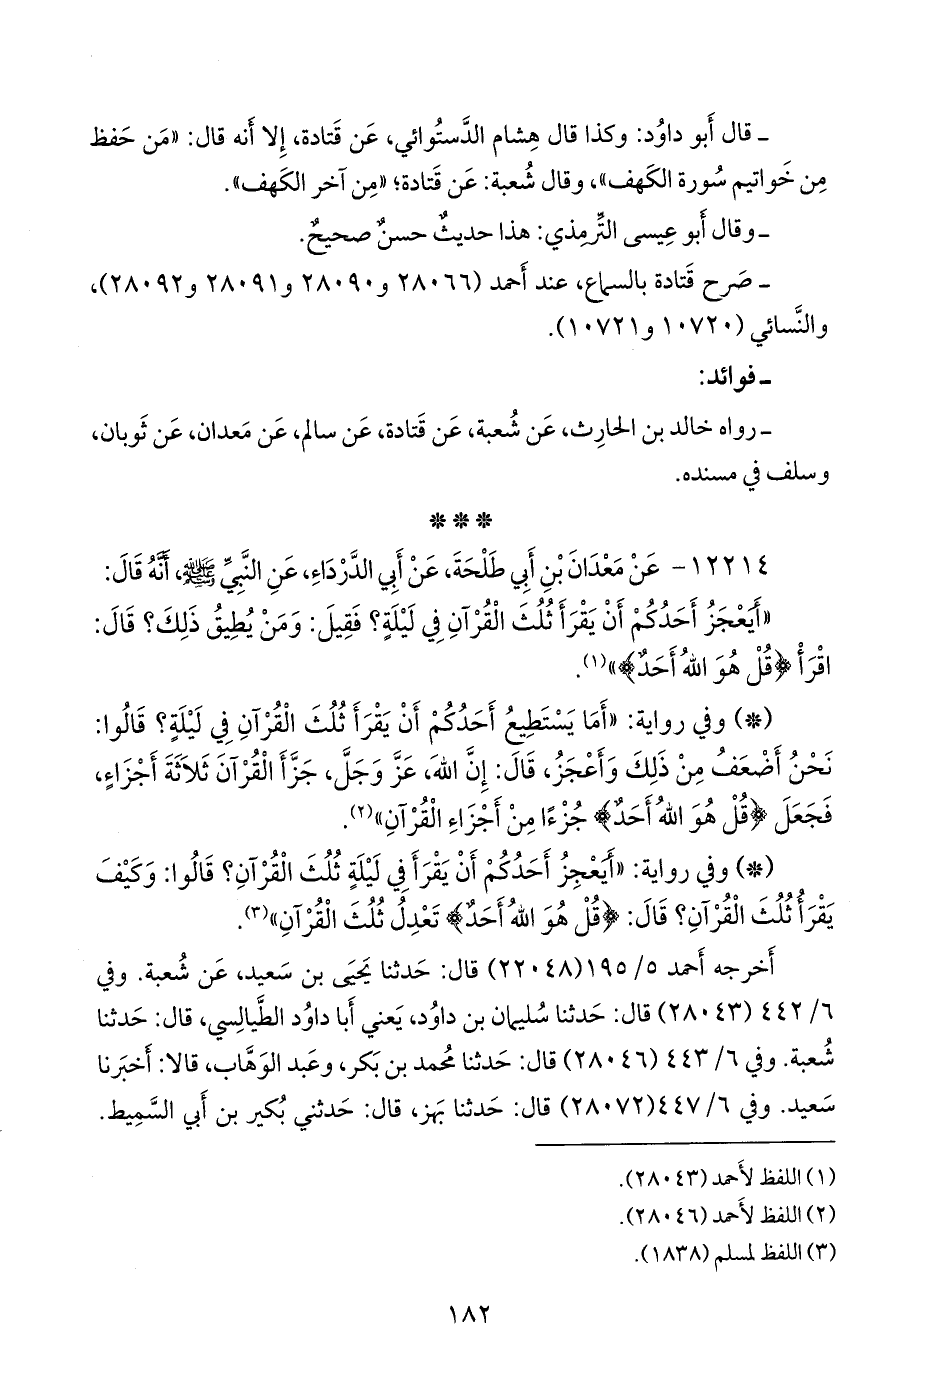 ـ قال أَبو داوُد: وكذا قال هِشام الدَّستُوائي، عَن قَتادة، إِلا أَنه قال: «مَن حَفظ
مِن خَواتيم سُورة الكَهف»، وقال شُعبة: عَن قَتادة؛ «مِن آخر الكَهف».
ـ وقال أَبو عِيسى التِّرمِذي: هذا حديثٌ حسنٌ صحيحٌ.
ـ صَرح قَتادة بالسماع، عند أَحمد (٢٨٠٦٦ و٢٨٠٩٠ و٢٨٠٩١ و٢٨٠٩٢)،
والنَّسائي (١٠٧٢٠ و١٠٧٢١).
ـ فوائد:
ـ رواه خالد بن الحارِث، عَن شُعبة، عَن قَتادة، عَن سالم، عَن مَعدان، عَن ثَوبان،
وسلف في مسنده.
* * *
١٢٢١٤- عَنْ مَعْدَانَ بْنِ أَبِي طَلْحَةَ، عَنْ أَبِي الدَّرْدَاءِ، عَنِ النَّبِيِّ ﷺ، أَنَّهُ قَالَ:
«أَيَعْجَزُ أَحَدُكُمْ أَنْ يَقْرَأَ ثُلُثَ الْقُرْآنِ فِي لَيْلَةٍ؟ فَقِيلَ: وَمَنْ يُطِيقُ ذَلِكَ؟ قَالَ:
اقْرَأْ ﴿قُلْ هُوَ اللهُ أَحَدٌ﴾»(١).
(*) وفي رواية: «أَمَا يَسْتَطِيعُ أَحَدُكُمْ أَنْ يَقْرَأَ ثُلُثَ الْقُرْآنِ فِي لَيْلَةٍ؟ قَالُوا:
نَحْنُ أَضْعَفُ مِنْ ذَلِكَ وَأَعْجَزُ، قَالَ: إِنَّ اللهَ، عَزَّ وَجَلَّ، جَزَّأَ الْقُرْآنَ ثَلَاثَةَ أَجْزَاءٍ،
فَجَعَلَ ﴿قُلْ هُوَ اللهُ أَحَدٌ﴾ جُزْءًا مِنْ أَجْزَاءِ الْقُرْآنِ»(٢).
(*) وفي رواية: «أَيَعْجِزُ أَحَدُكُمْ أَنْ يَقْرَأَ فِي لَيْلَةٍ ثُلُثَ الْقُرْآنِ؟ قَالُوا: وَكَيْفَ
يَقْرَأُ ثُلُثَ الْقُرْآنِ؟ قَالَ: ﴿قُلْ هُوَ اللهُ أَحَدٌ﴾ تَعْدِلُ ثُلُثَ الْقُرْآنِ»(٣).
أَخرجه أَحمد ٥/ ١٩٥(٢٢٠٤٨) قال: حَدثنا يَحيَى بن سَعيد، عَن شُعبة. وفي
٦/ ٤٤٢ (٢٨٠٤٣) قال: حَدثنا سُليمان بن داوُد، يَعني أَبا داوُد الطَّيالِسي، قال: حَدثنا
شُعبة. وفي ٦/ ٤٤٣ (٢٨٠٤٦) قال: حَدثنا مُحمد بن بَكر، وعَبد الوَهَّاب، قالا: أَخبَرنا
سَعيد. وفي ٦/ ٤٤٧(٢٨٠٧٢) قال: حَدثنا بَهز، قال: حَدثني بُكير بن أَبي السَّمِيط.
(١) اللفظ لأَحمد (٢٨٠٤٣).
(٢) اللفظ لأَحمد (٢٨٠٤٦).
(٣) اللفظ لمسلم (١٨٣٨).
١٨٢